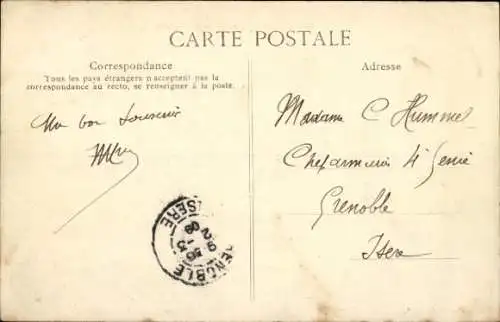 CARTE POSTALE
Correspondance
Tous les pays étrangers n'acceptent pas la
correspondance au recto, se renseigner à la poste.
Adresse
Un bon Souvenir
Madame C Hummel
Chefarmurier 4e Génie
Grenoble
Isère
GRENOBLE
ISERE